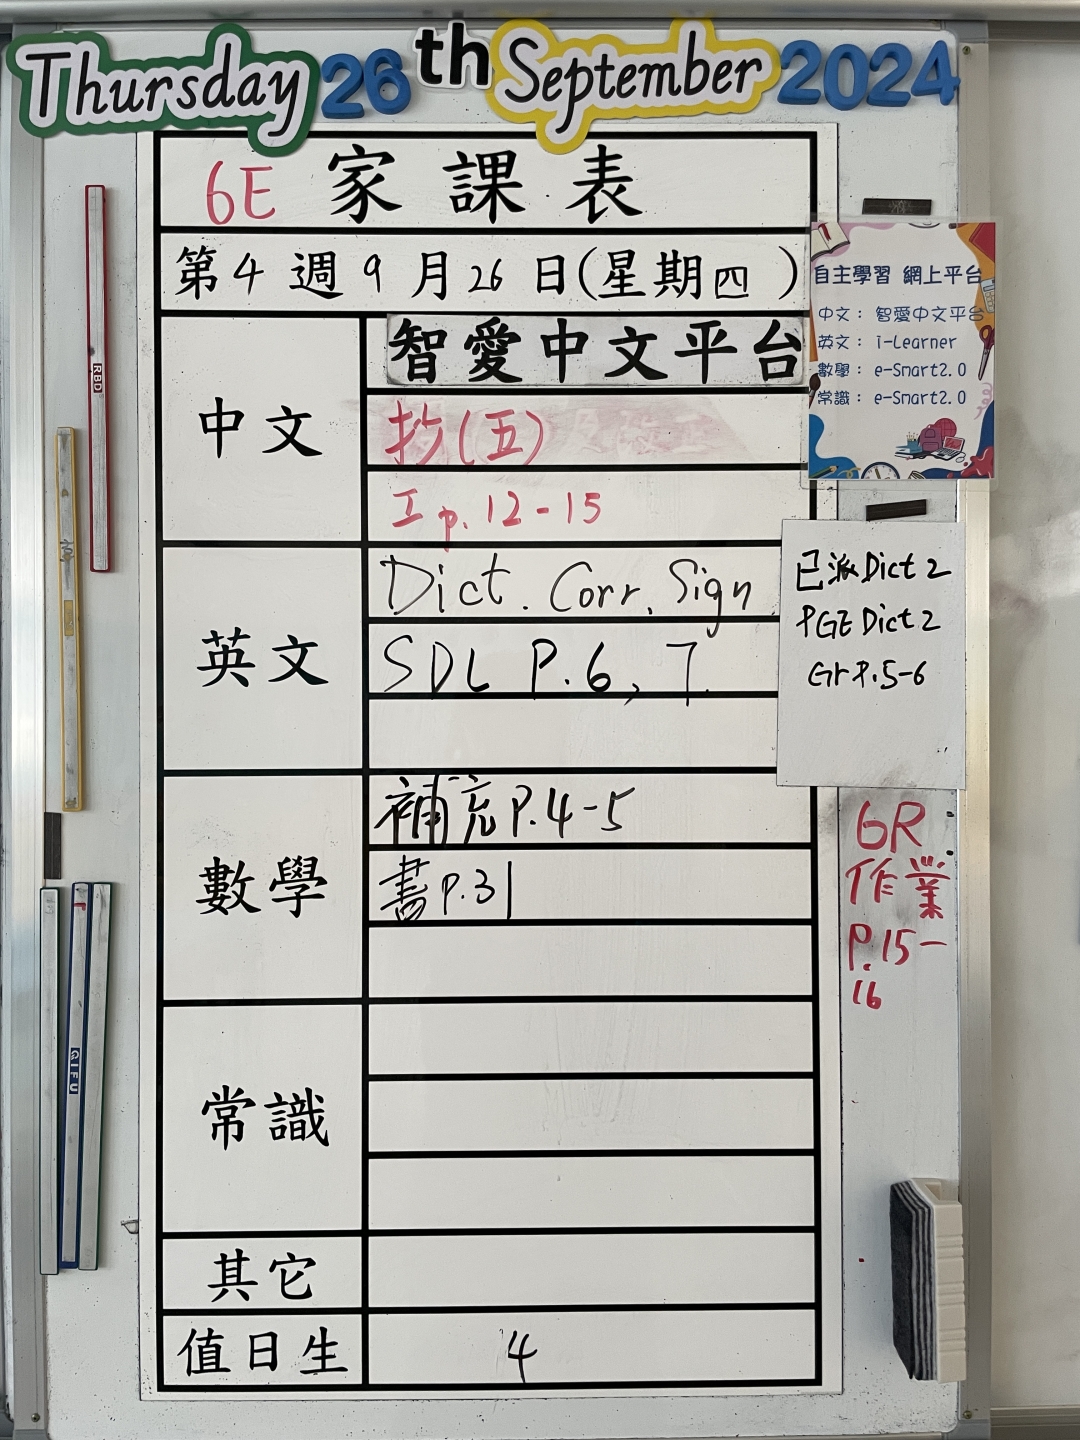 Thursday 26th September 2024
6E 家課表
第4週9月26日(星期四)
中文
智愛中文平台
抄(五)
工p.12-15
英文
Dict. Corr. Sign
SDL P.6, 7
數學
補充P.4-5
書P.31
常識
其它
值日生
4
自主學習 網上平台
中文： 智愛中文平台
英文： i-Learner
數學： e-Smart2.0
常識： e-Smart2.0
已派Dict 2
PGE Dict 2
Gr P.5-6
6R
作業
P.15-
16
RBD
GIFU